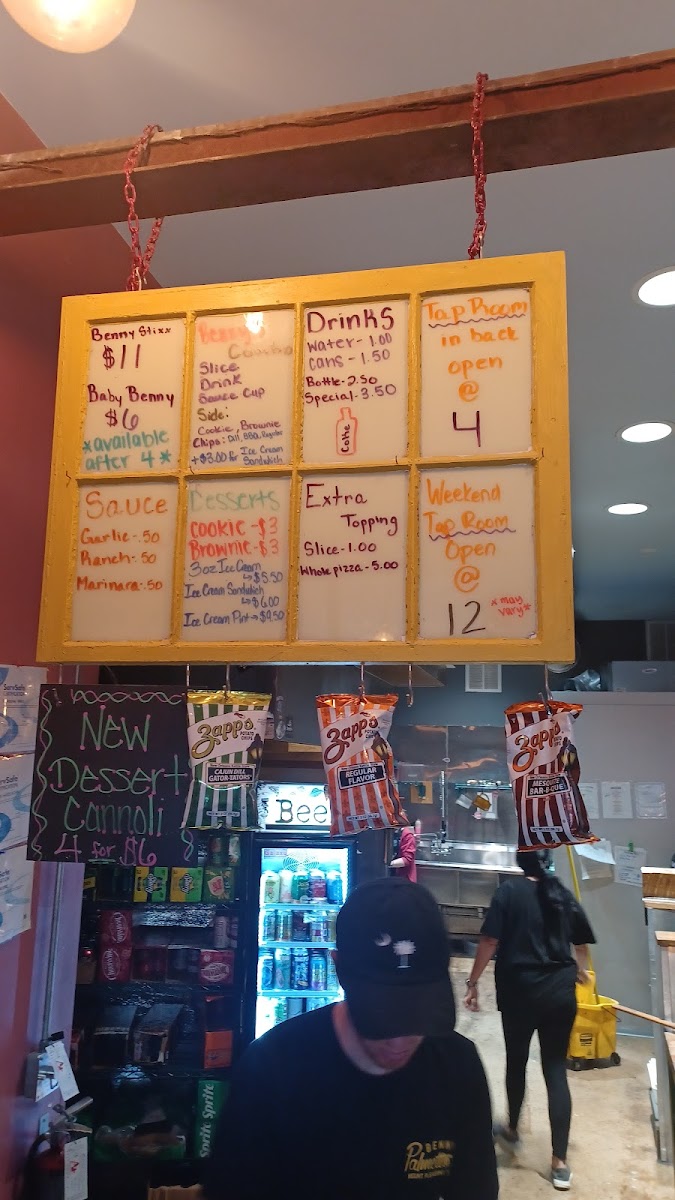 Benny Stixx
$11
Baby Benny
$6
*available
after 4*
Benny's
Combo
Slice
Drink
Sauce Cup
Side:
Cookie, Brownie
Chips: Dill, BBQ, Regular
+$3.00 for Ice Cream
Sandwich
Drinks
Water - 1.00
Cans - 1.50
Bottle - 2.50
Special - 3.50
Coke
Tap Room
in back
open
@
4
Sauce
Garlic - .50
Ranch - .50
Marinara - .50
Desserts
Cookie - $3
Brownie - $3
3oz Ice Cream
↳ $5.50
Ice Cream Sandwich
↳ $6.00
Ice Cream Pint → $9.50
Extra
Topping
Slice - 1.00
Whole pizza - 5.00
Weekend
Tap Room
Open
@
12
*may
vary*
New
Dessert
Cannoli
4 for $6
Zapp's
POTATO CHIPS
CAJUN DILL
GATOR-TATORS
Zapp's
POTATO CHIPS
REGULAR
FLAVOR
Zapp's
POTATO CHIPS
MESQUITE
BAR-B-QUE
Bee
ServSafe
ServSafe
Sprite
Sprite
BENNY
Palmetto's